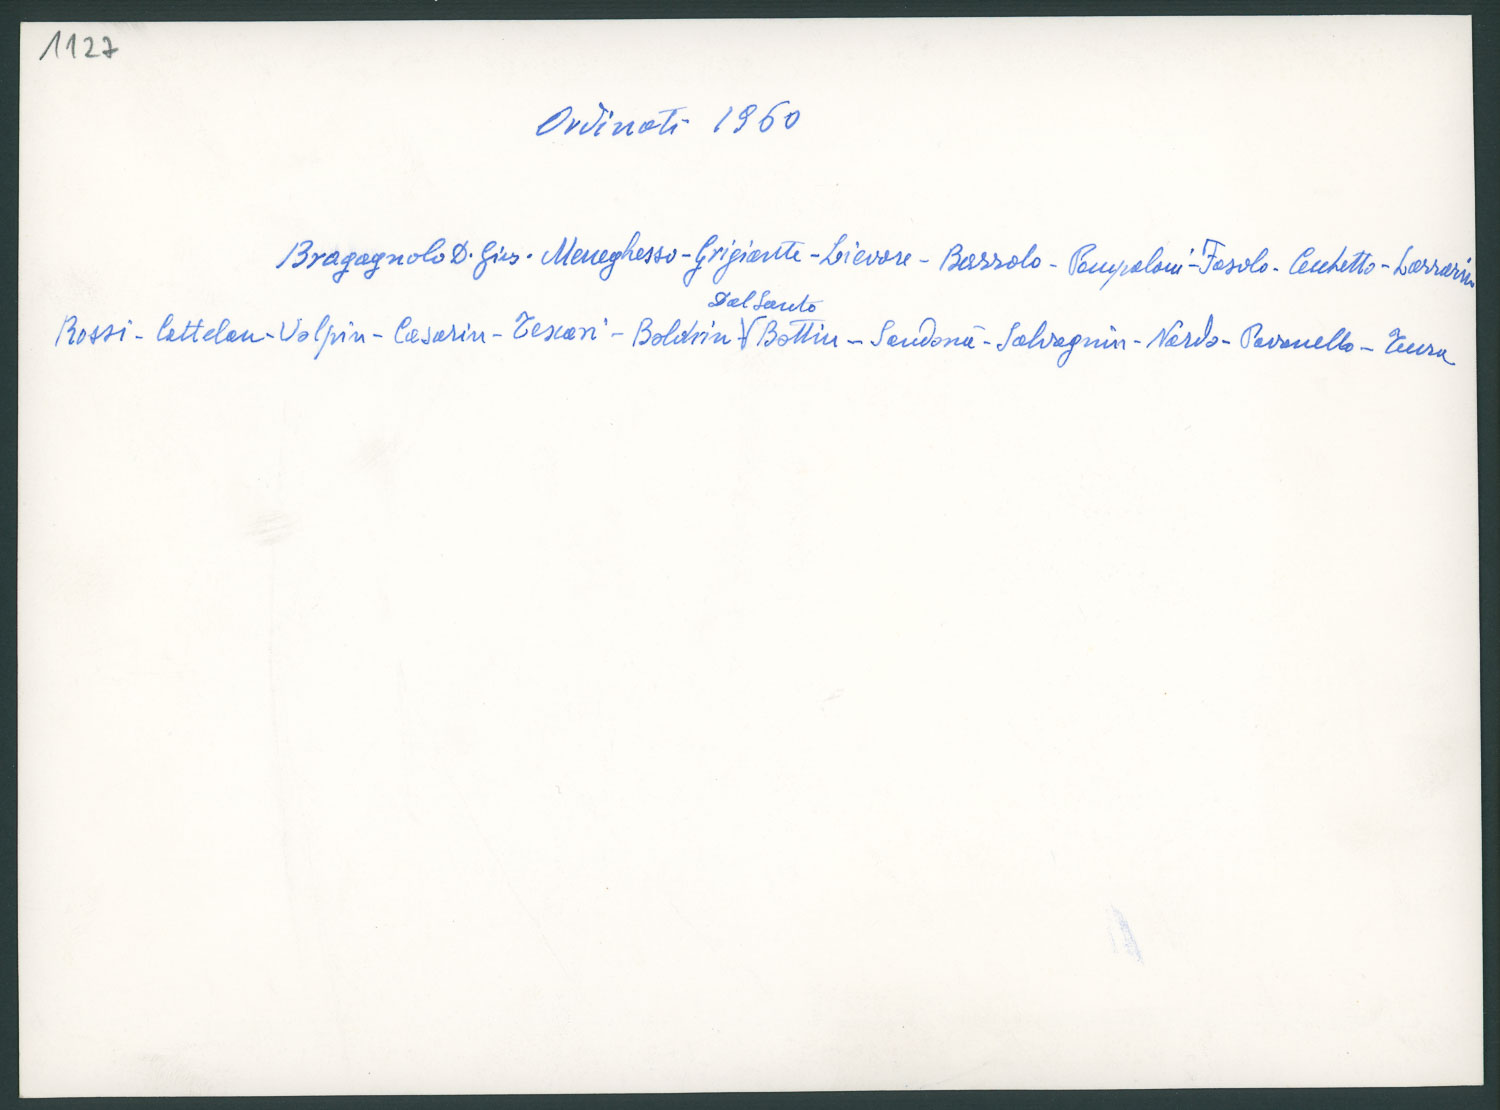 1127
Ordinati 1960
Bragagnolo D. Gius. Meneghesso - Grigiante - Lievore - Bazzolo - Pampaloni - Fasolo - Cecchetto - Lazzarin
Dal Santo
Rossi - Cattelan - Volpin - Casarin - Tescari - Boldrin V Bottin - Sandonà - Salvagnin - Nardo - Pavanello -